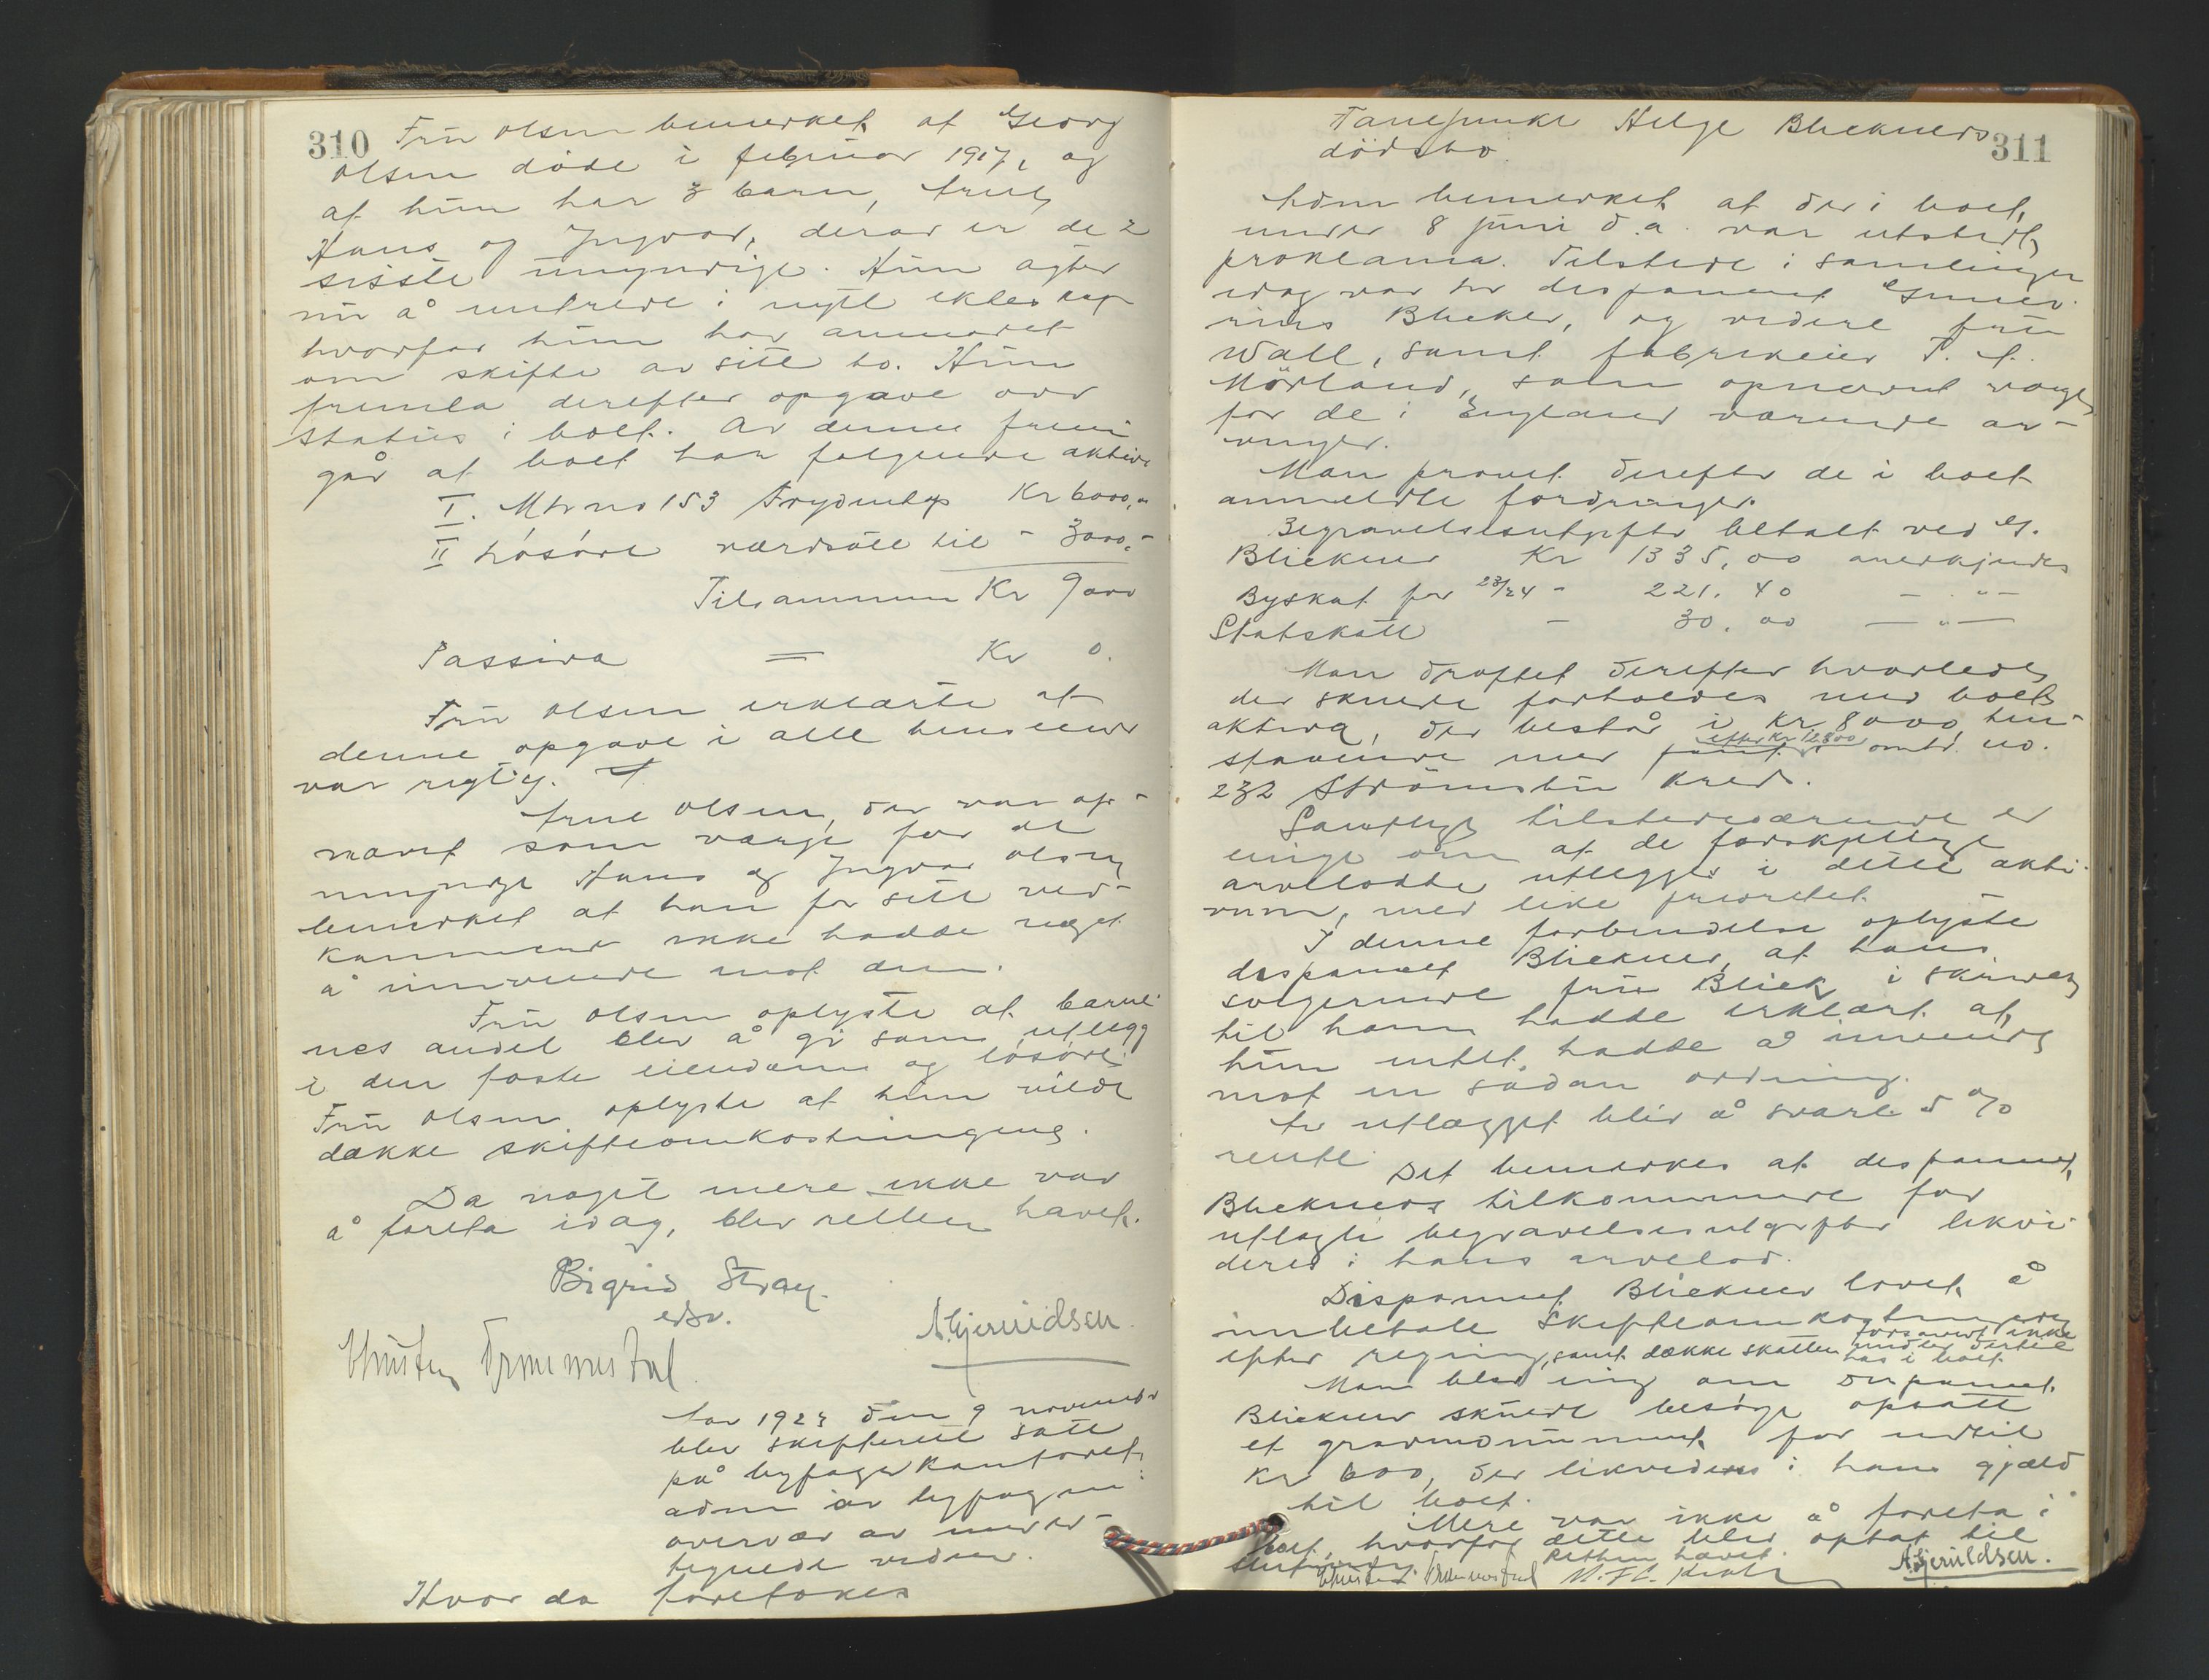 310
Frü Olsen bemerket at Georg
Olsen döde i februar 1917, og
at hün har 3 barn,
Hans og Yngvar, derav er de 2
sisste ümyndige. Hün agter
nü å inntrede i nytt ekteskap
hvorfor hün har anmodet
om skifte av sitt bo. Hün
fremla derefter opgave over
status i boet. Av denne frem
går at boet har følgende aktiva
I. Mtr no 153 Frydenlys Kr 6000,-
II løsøre verdsatt til - 3000,-
Tilsammen Kr 9000
Passiva = Kr 0.
Frü Olsen erklærte at
denne opgave i alle henseender
var rigtig.
Olsen, der var op-
nævnt som værge for de
umyndige Hans og Yngvar Olsen
bemerket at han for sitt ved-
kommende ikke hadde noget
å innvende mot den.
Frü Olsen oplyste at barne-
nes andel blev å gi som utlegg
i den faste eiendom og løsøre.
Frü Olsen oplyste at hün vilde
dække skifteomkostningene.
Da noget mere ikke var
å foreta idag, blev retten hævet.
Sigrid Stray.
edsv.
A. Gjeruldsen.
Christen
Aar 1923 den 9 november
blev skifterett satt
på byfogedkontoret
adm av byfogden i
overvær av under-
tegnede vidner.
Hvor da foretokes
311
Helge Blickners
dödsbo.
Adm bemerket at der i boet,
under 8 juni d.a. var utstedt
proklama. Tilstede i samlingen
idag var hr disponent
Blickner, og videre frü
Wall, samt fabrikeier
Mörland, som opnævnt værge
for de i England værende ar-
vinger.
Man prøvet derefter de i boet
anmeldte fordringer.
Begravelsesutgifter betalt ved G.
Blickner Kr 1335,00 anerkjendes
Byskat for 23/24 - 221.40 - " -
Statskatt - 30.00 - " -
Man drøftet derefter hvorledes
der skulde forholdes med boets
aktiva, der består i Kr 8000, hen-
stående mot efter Kr omtr. no.
232 Strömsbu kred.
Samtlige tilstedeværende er
enige om at de forskjellige
arvelodder utlegges i dette akti-
vum, med like prioritet.
I denne forbindelse oplyste
disponent Blickner, at hans
svigerinde frü Blick i skrivelse
til ham hadde erklært at
hün intet hadde å innvende
mot en sådan ordning.
Av utlægget blir å svare 5 %
rente.
Det bemerkes at disponent
Blickners tilkommende for
utlagte begravelsesutgifter likvi-
deres i hans arvelod.
Disponent Blickner lovet å
innbetale Skifteomkostningene
efter regning, samt dække skatten forsåvidt ikke
midler dertil
has i boet
Man blev enig om disponent
Blickner skulde besørge opsatt
et gravmonument for indtil
Kr 600, der likvideres i hans gjæld
til boet.
Mere var ikke å foreta i
boet, hvorfor dette blev optat til
slutning. Retten hævet.
Christen
A. Gjeruldsen.